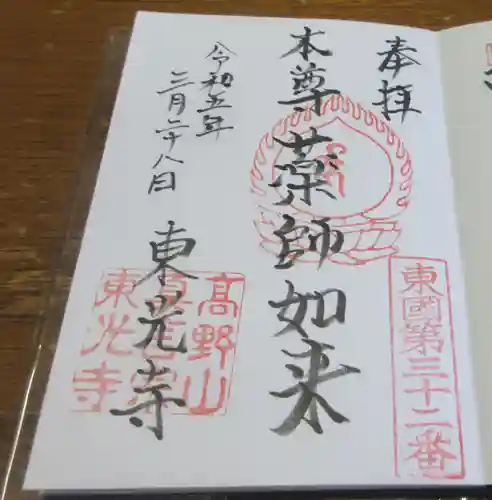 奉拝
東國第三十二番
本尊薬師如来
令和五年
三月二十八日
東光寺
高野山
真言宗
東光寺